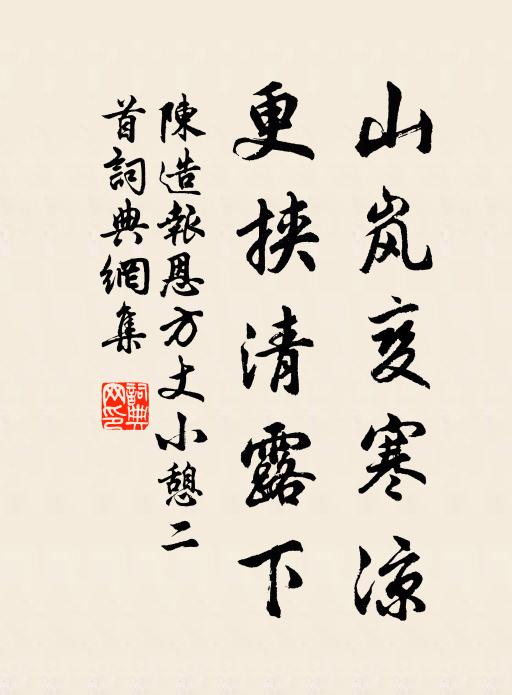 山岚变寒凉
更挟清露下
陳造報恩方丈小憩二
首詞典網集
詞典
网印